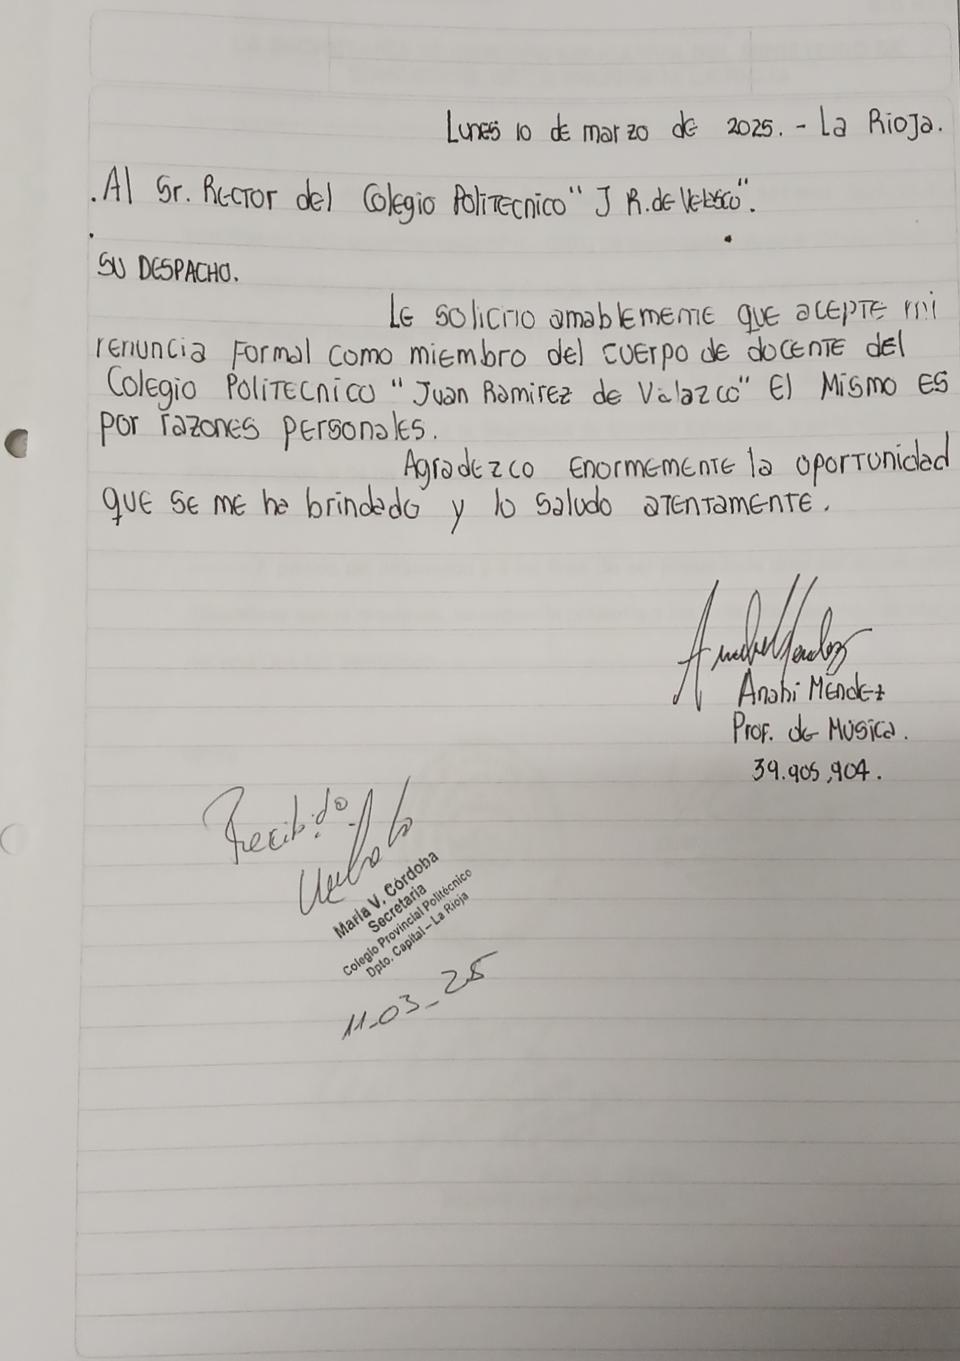 Lunes 10 de marzo de 2025. - La Rioja.
.Al Sr. Rector del Colegio Politecnico "J R. de Velasco".
SU DESPACHO.
Le solicito amablemente que acepte mi
renuncia formal como miembro del cuerpo de docente del
Colegio Politecnico "Juan Ramirez de Valazco" El mismo es
por razones personales.
Agradezco enormemente la oportunidad
que se me ha brindado y lo saludo atentamente.
Anahi Méndez
Prof. de Musica.
39.905,904.
Recibido
María V. Córdoba
Secretaria
Colegio Provincial Politécnico
Dpto. Capital – La Rioja
11-03-25